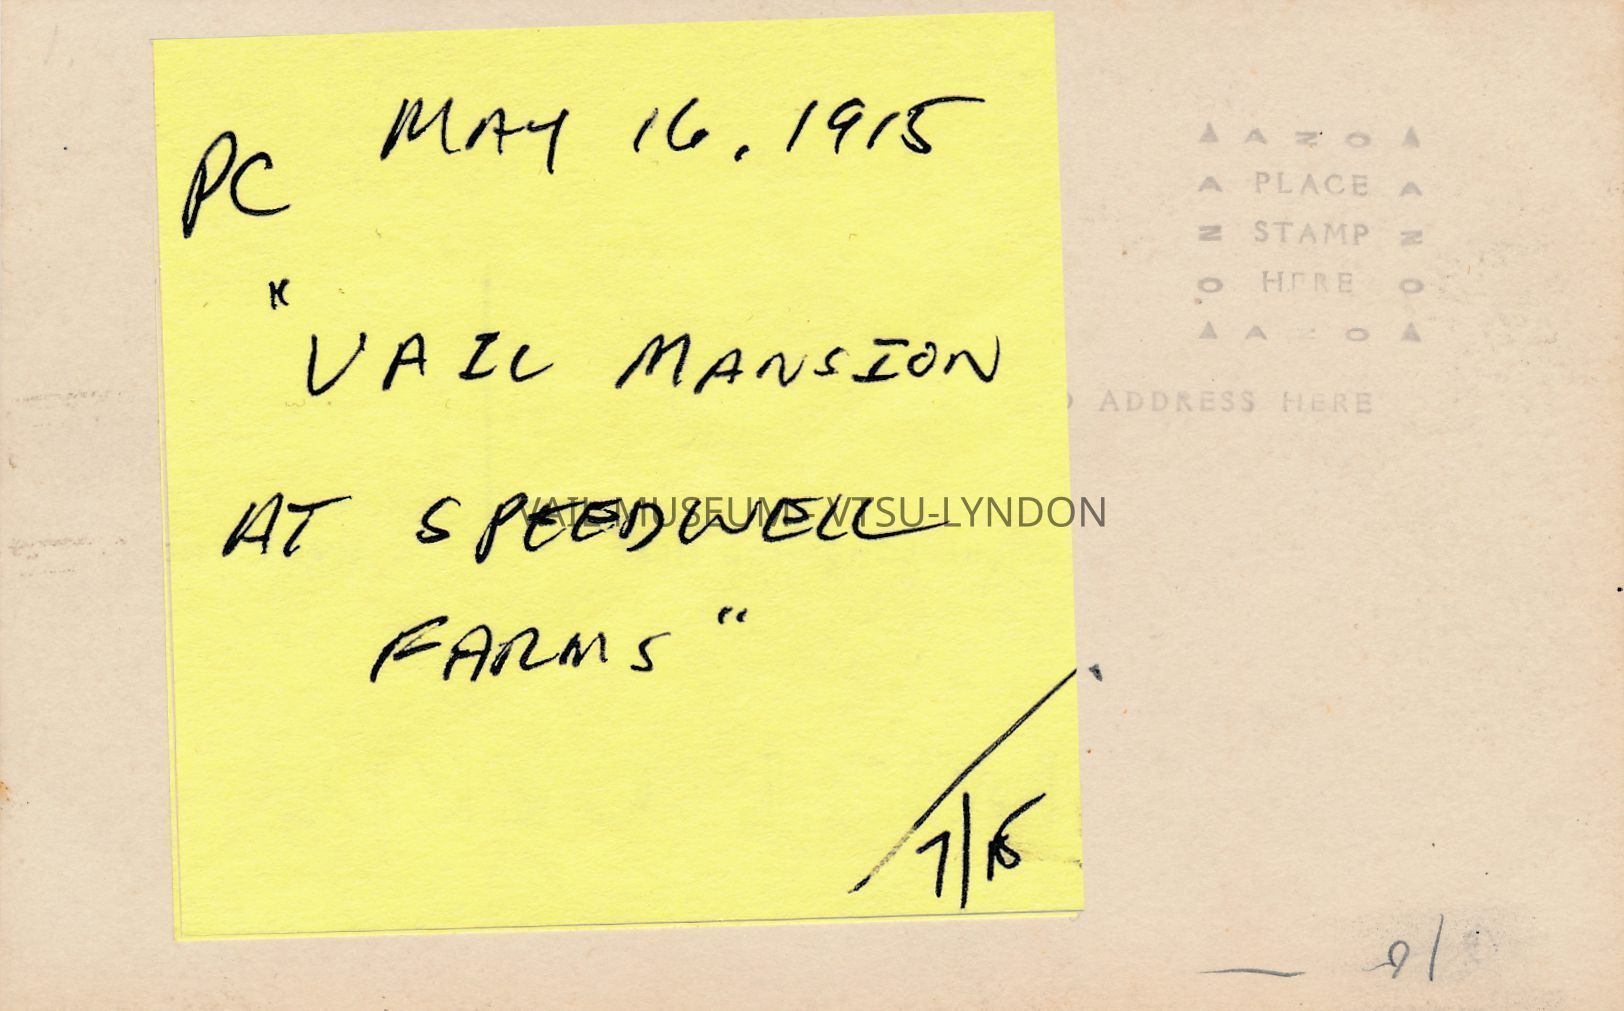 MAY 16, 1915
PC
"VAIL MANSION
AT SPEEDWELL
FARMS"
AZO
A PLACE A
N STAMP N
O HERE O
AZO
ADDRESS HERE
VAIL MUSEUM - VTSU-LYNDON